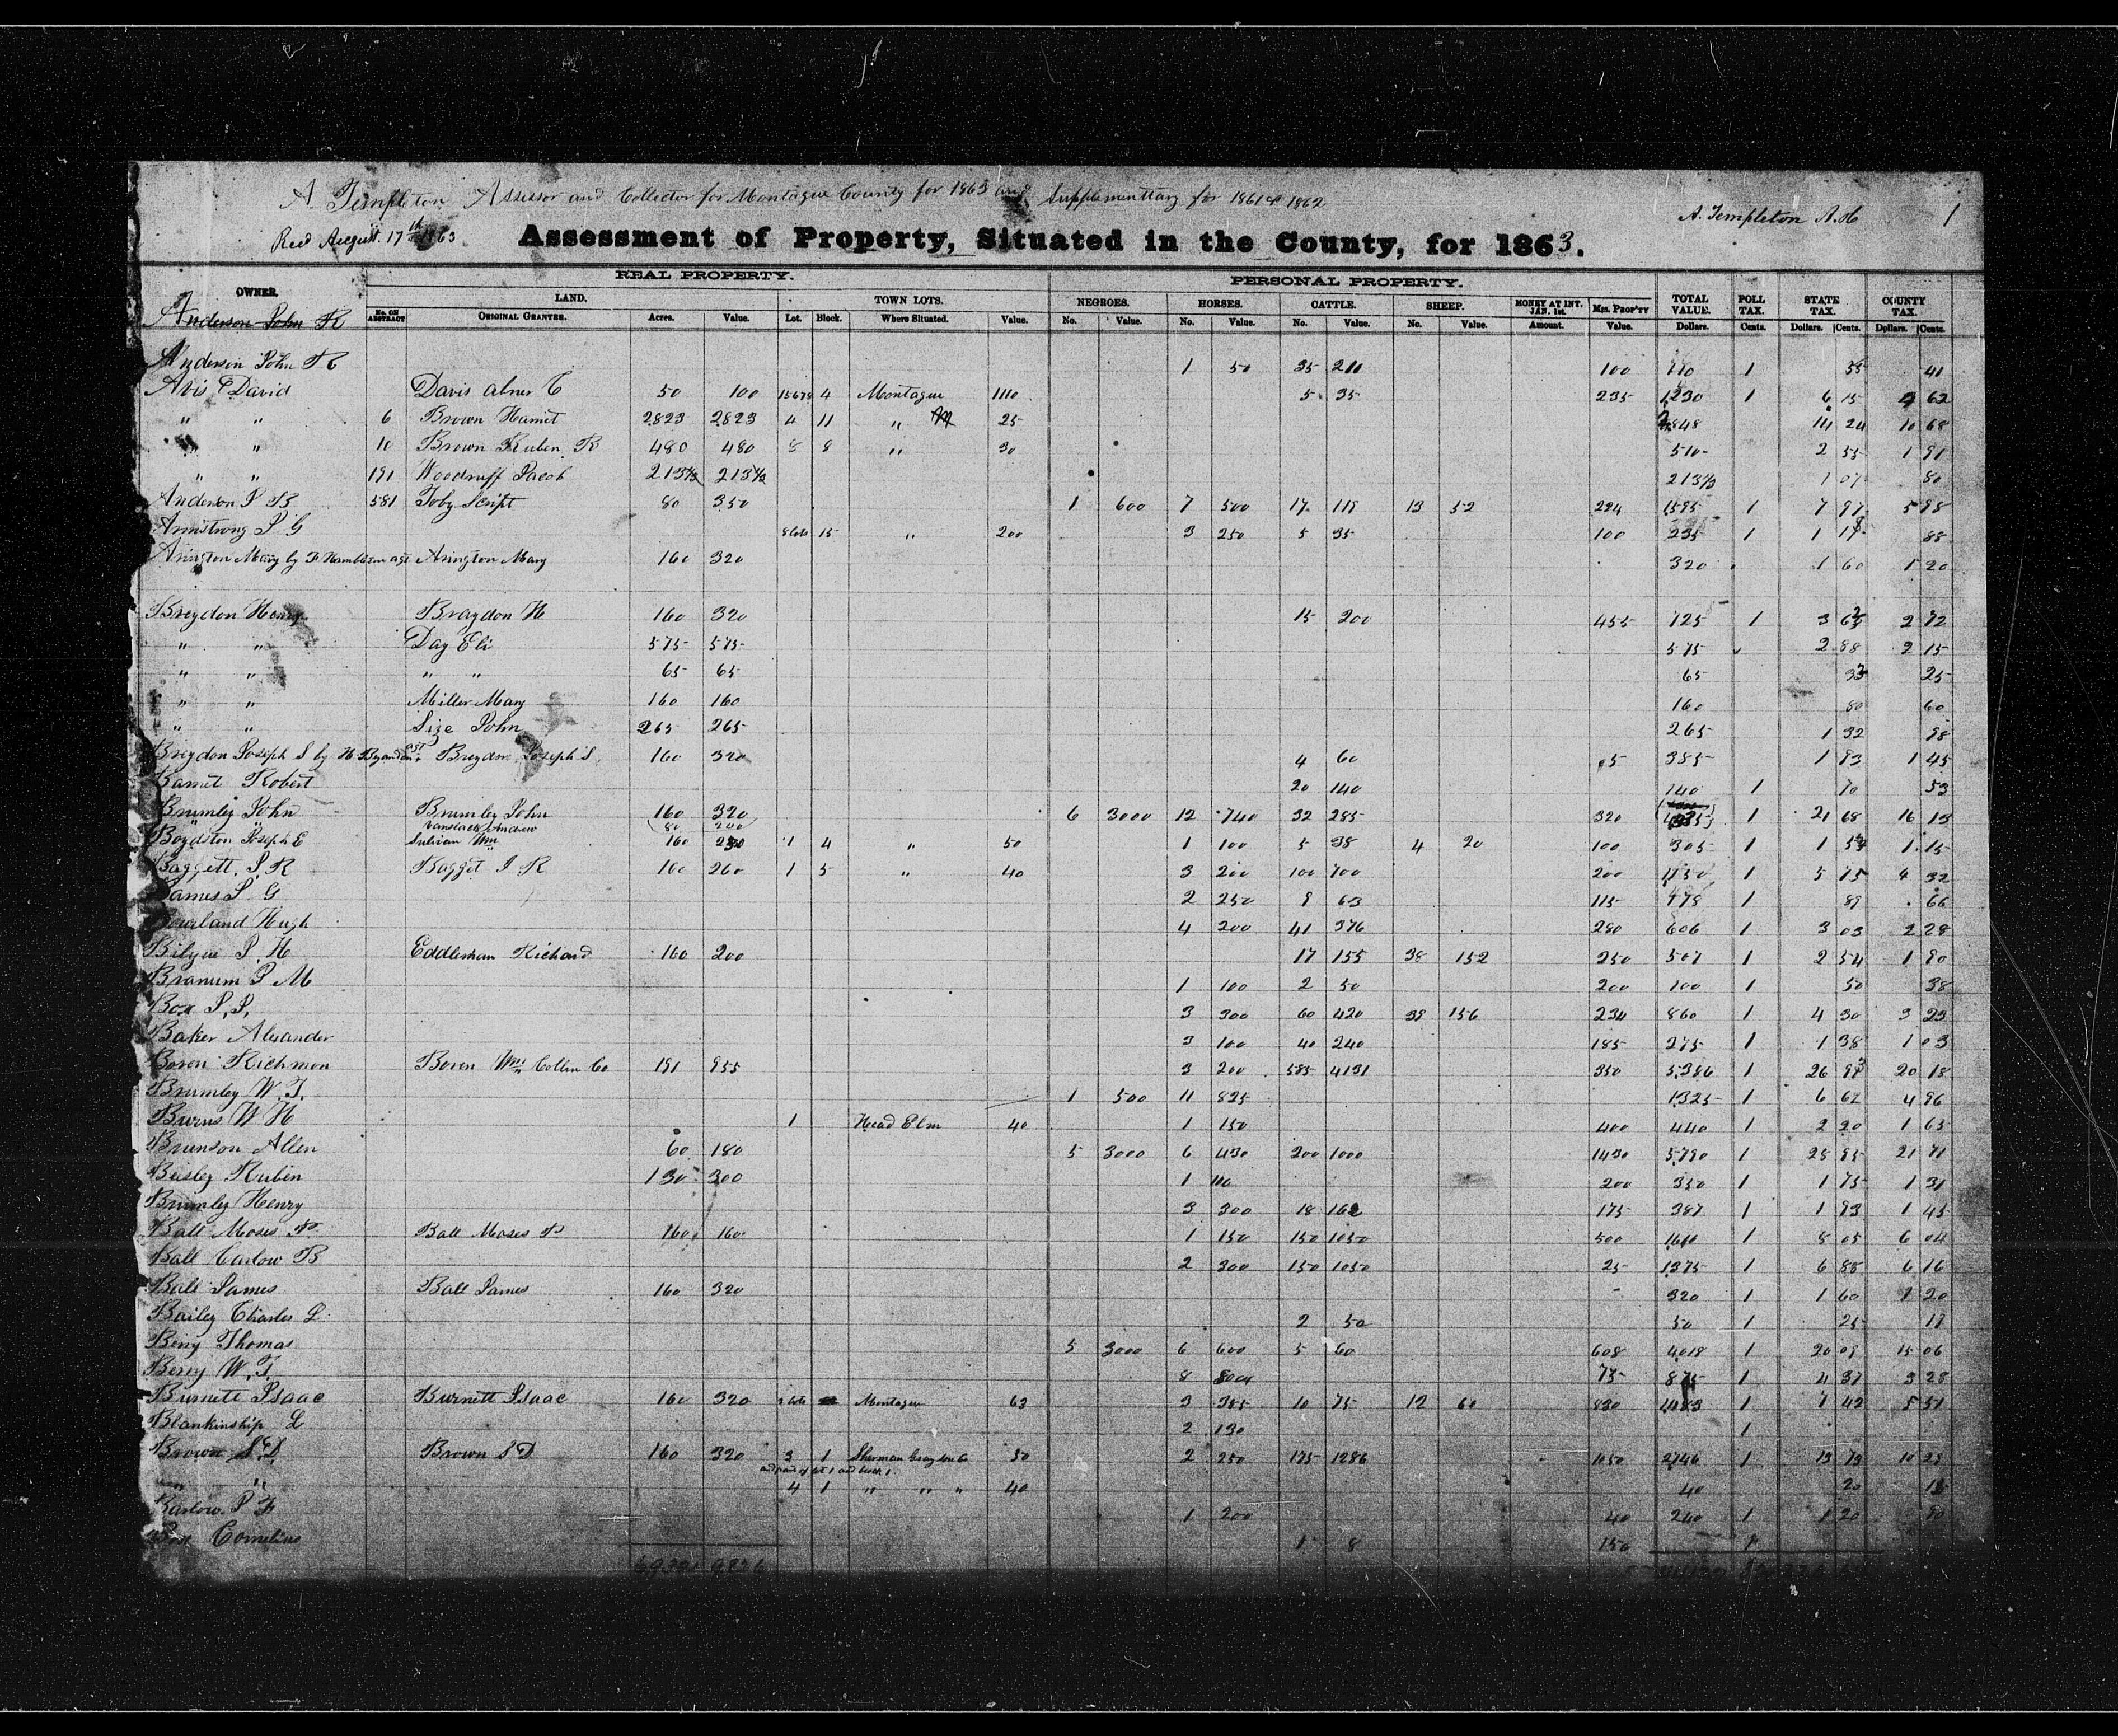 A Templeton Assessor and Collector for Montague County for 1863 and Supplementtary for 1861 & 1862
A. Templeton A.&C 1
Recd August 17th 1863
Assessment of Property, Situated in the County, for 1863.
REAL PROPERTY. PERSONAL PROPERTY.
OWNER. LAND. TOWN LOTS. NEGROES. HORSES. CATTLE. SHEEP. MONEY AT INT. JAN. 1st. MIS. PROP'TY TOTAL VALUE. POLL TAX. STATE TAX. COUNTY TAX.
No. ON ABSTRACT ORIGINAL GRANTEE. Acres. Value. Lot. Block. Where Situated. Value. No. Value. No. Value. No. Value. No. Value. Amount. Value. Dollars. Cents. Dollars. Cents. Dollars. Cents.
Anderson John R
Anderson John R 1 50 35 210 100 110 1 55 41
Avis David Davis Abner C 50 100 4 Montague 1110 5 35 235 1230 1 6 15 62
" " 6 Brown Harriet 2823 2823 4 11 " 25 2848 14 24 10 68
" " 10 Brown Ruben R 480 480 8 8 " 30 510 2 55 1 91
" " 191 Woodruff Jacob 213 1/3 213 1/3 213 1/3 1 07 80
Anderson J B 581 Toby Script 80 350 1 600 7 500 17 119 13 52 224 1595 1 7 97 5 98
Armstrong J G 8 lots 15 " 200 3 250 5 35 100 235 1 1 18 88
Arington Mary by agt Arington Mary 160 320 320 1 60 1 20
Bregdon Henry Bragdon H 160 320 15 200 455 725 1 3 63 2 72
" " Day Eli 575 575 575 2 88 2 15
" " " " 65 65 65 33 25
" " Miller Mary 160 160 160 80 60
" " Size John 265 265 265 1 32 98
Bregdon Joseph S by H agt Bregdon Joseph S. 160 320 4 60 5 385 1 93 1 45
Barnet Robert 20 140 140 1 70 53
Brumley John Brumley John 160 320 6 3000 12 740 32 285 320 1 21 68 16 13
" " Andrew 80 200
Boydston Joseph E Sulivan Wm 160 1 4 " 50 1 100 5 38 4 20 100 305 1 1 53 1 15
Baggett, J. R Bagget J. R 160 260 1 5 " 40 3 200 100 700 200 1150 1 5 75 4 32
James J G 2 250 9 63 115 178 1 89 66
Bourland Hugh 4 200 41 376 280 606 1 3 03 2 28
Bilyue J. H Eddleman Richard 160 200 17 155 38 152 250 507 1 2 54 1 90
Branum J M 1 100 2 50 200 100 1 50 38
Box J. J. 3 300 60 420 39 156 234 860 1 4 30 3 23
Baker Alexander 3 100 40 240 185 275 1 1 38 1 03
Boren Richmon Boren Wm Collin Co 191 955 3 200 585 4131 350 5386 1 26 93 20 18
Brumley W. T. 1 500 11 825 1325 1 6 62 4 96
Burns W H 1 Head Elm 40 1 150 400 440 1 2 20 1 65
Brunson Allen 60 180 5 3000 6 430 200 1000 1430 5790 1 28 95 21 71
Beisley Rubin 130 300 1 110 200 350 1 1 75 1 31
Brumley Henry 3 300 18 162 175 387 1 1 93 1 45
Ball Moses P. Ball Moses P 160 160 1 150 150 1050 500 1610 1 8 05 6 04
Ball Carlow B 2 300 150 1050 25 1375 1 6 88 6 16
Ball James Ball James 160 320 320 1 1 60 1 20
Bailey Charles L 2 50 50 1 25 19
Berry Thomas 5 3000 6 600 5 60 608 4018 1 20 09 15 06
Berry W. T. 8 800 75 875 1 4 37 3 28
Burnett Isaac Burnett Isaac 160 320 lots Montague 63 3 385 10 75 12 60 830 1483 1 7 42 5 57
Blankinship L 2 130 1
Brown S D Brown S D 160 320 3 1 Sherman Grayson Co 50 2 250 175 1286 1050 2746 1 13 73 10 29
and part of lot 1 and block 1.
" " 4 1 " " " 40 40 20 15
Barlow. J F 1 200 40 240 1 1 20 90
Box Cornelius 1 8 150